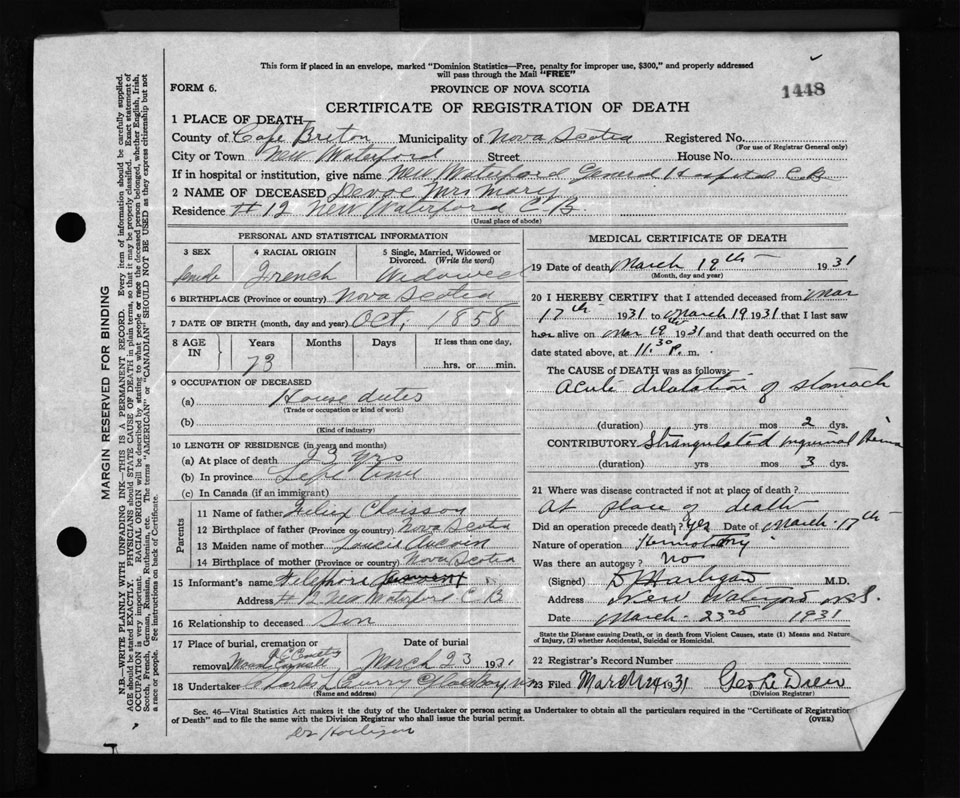 This form if placed in an envelope, marked "Dominion Statistics—Free, penalty for improper use, $300," and properly addressed
will pass through the Mail "FREE"
1448
FORM 6.
PROVINCE OF NOVA SCOTIA
CERTIFICATE OF REGISTRATION OF DEATH
1 PLACE OF DEATH—
County of Cape Breton Municipality of Nova Scotia Registered No.
(For use of Registrar General only)
City or Town New Waterford Street House No.
If in hospital or institution, give name New Waterford General Hospital C.B
2 NAME OF DECEASED Devoe Mrs Mary
Residence #12 New Waterford C.B.
(Usual place of abode)
PERSONAL AND STATISTICAL INFORMATION
3 SEX 4 RACIAL ORIGIN 5 Single, Married, Widowed or Divorced. (Write the word)
French Widowed
6 BIRTHPLACE (Province or country) Nova Scotia
7 DATE OF BIRTH (month, day and year) Oct, 1858
8 AGE IN Years Months Days If less than one day,
73 hrs. or min.
9 OCCUPATION OF DECEASED
(a) House duties
(Trade or occupation or kind of work)
(b)
(Kind of industry)
10 LENGTH OF RESIDENCE (in years and months)
(a) At place of death 23 yrs
(b) In province Life time
(c) In Canada (if an immigrant)
Parents
11 Name of father Chaisson
12 Birthplace of father (Province or country) Nova Scotia
13 Maiden name of mother Aucoin
14 Birthplace of mother (Province or country) Nova Scotia
15 Informant's name
Address #12 New Waterford C B
16 Relationship to deceased Son
17 Place of burial, cremation or removal Date of burial
Mount March 23 1931
18 Undertaker Charles L Curry Glace Bay NS
(Name and address)
MEDICAL CERTIFICATE OF DEATH
19 Date of death March 19th 1931
(Month, day and year)
20 I HEREBY CERTIFY that I attended deceased from Mar
17th 1931 to March 19 1931 that I last saw
her alive on Mar 19th 1931 and that death occurred on
date stated above, at 11.30 P. m.
The CAUSE of DEATH was as follows:
Acute dilatation of stomach
(duration) yrs mos 2 dys.
CONTRIBUTORY Strangulated inguinal Hernia
(duration) yrs mos 3 dys.
21 Where was disease contracted if not at place of death?
At place of death
Did an operation precede death? Yes Date of March 17th
Nature of operation Herniotomy
Was there an autopsy? No
(Signed) Hartigan M.D.
Address New Waterford N.S.
Date March 23rd 1931
State the Disease causing Death, or in death from Violent Causes, state (1) Means and Nature of Injury, (2) whether Accidental, Suicidal or Homicidal.
22 Registrar's Record Number
23 Filed March 24 1931 Geo Le Drew
(Division Registrar)
Sec. 46—Vital Statistics Act makes it the duty of the Undertaker or person acting as Undertaker to obtain all the particulars required in the "Certificate of Registration
of Death" and to file the same with the Division Registrar who shall issue the burial permit. (OVER)
Dr Hartigan
MARGIN RESERVED FOR BINDING
N.B.—WRITE PLAINLY WITH UNFADING INK—THIS IS A PERMANENT RECORD. Every item of information should be carefully supplied.
AGE should be stated EXACTLY. PHYSICIANS should STATE CAUSE OF DEATH in plain terms, so that it may be properly classified. Exact statement of
OCCUPATION is very important. RACIAL ORIGIN will be described by stating to what people or race the deceased person belonged, whether English, Irish,
Scotch, French, German, Russian, Ruthenian, etc. The terms "AMERICAN" or "CANADIAN" SHOULD NOT BE USED as they express citizenship but not
a race or people. See instructions on back of Certificate.